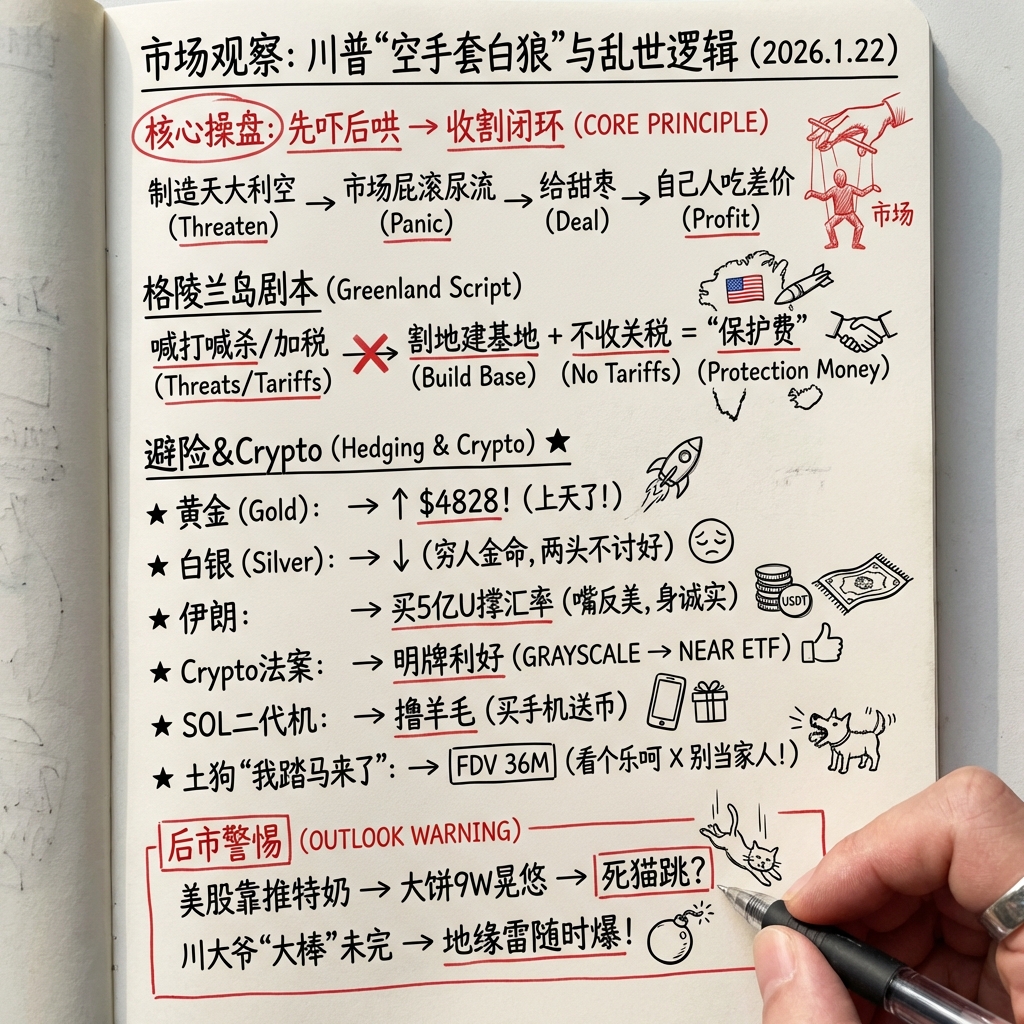 市场观察: 川普“空手套白狼”与乱世逻辑 (2026.1.22)
核心操盘: 先吓后哄 → 收割闭环 (CORE PRINCIPLE)
制造天大利空 → 市场屁滚尿流 → 给甜枣 → 自己人吃差价
(Threaten) (Panic) (Deal) (Profit)
市场
格陵兰岛剧本 (Greenland Script)
喊打喊杀/加税 → 割地建基地 + 不收关税 = “保护费”
(Threats/Tariffs) (Build Base) (No Tariffs) (Protection Money)
避险&Crypto (Hedging & Crypto) ★
★ 黄金 (Gold): → ↑ $4828! (上天了!)
★ 白银 (Silver): → ↓ (穷人金命, 两头不讨好)
★ 伊朗: → 买5亿U撑汇率 (嘴反美, 身诚实)
USDT
★ Crypto法案: → 明牌利好 (GRAYSCALE → NEAR ETF)
★ SOL二代机: → 撸羊毛 (买手机送币)
★ 土狗“我踏马来了”: → FDV 36M (看个乐呵 X 别当家人!)
后市警惕 (OUTLOOK WARNING)
美股靠推特奶 → 大饼9W晃悠 → 死猫跳?
川大爷“大棒”未完 → 地缘雷随时爆!